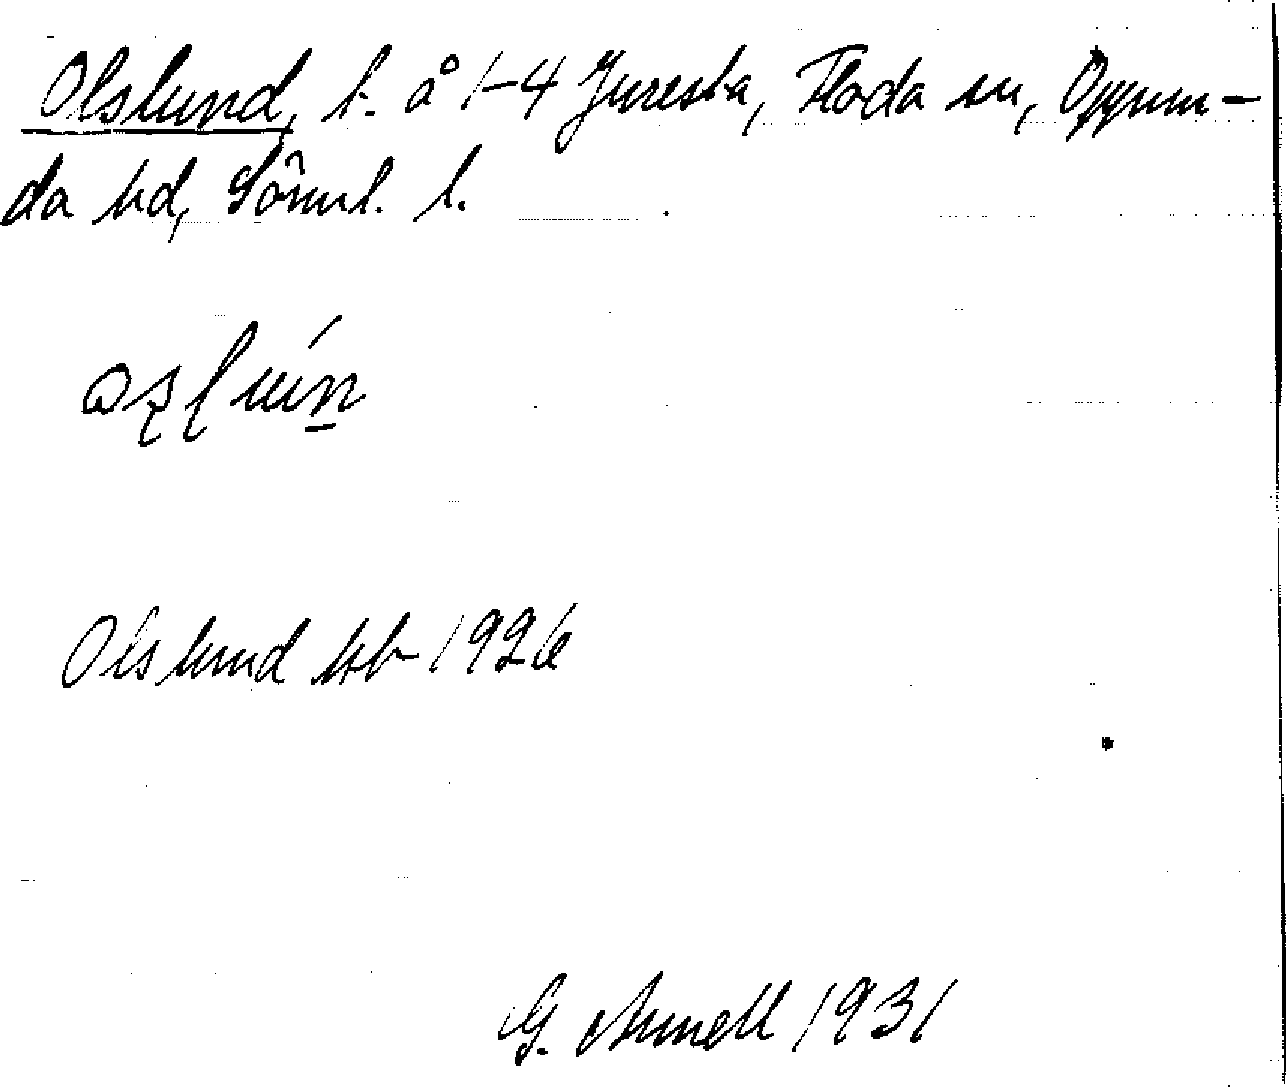 Olslund, t. å 1-4 Juresta, Floda sn, Oppun-
da hd, Söml. l.
Olslund hb 1926
G. Arnell 1931